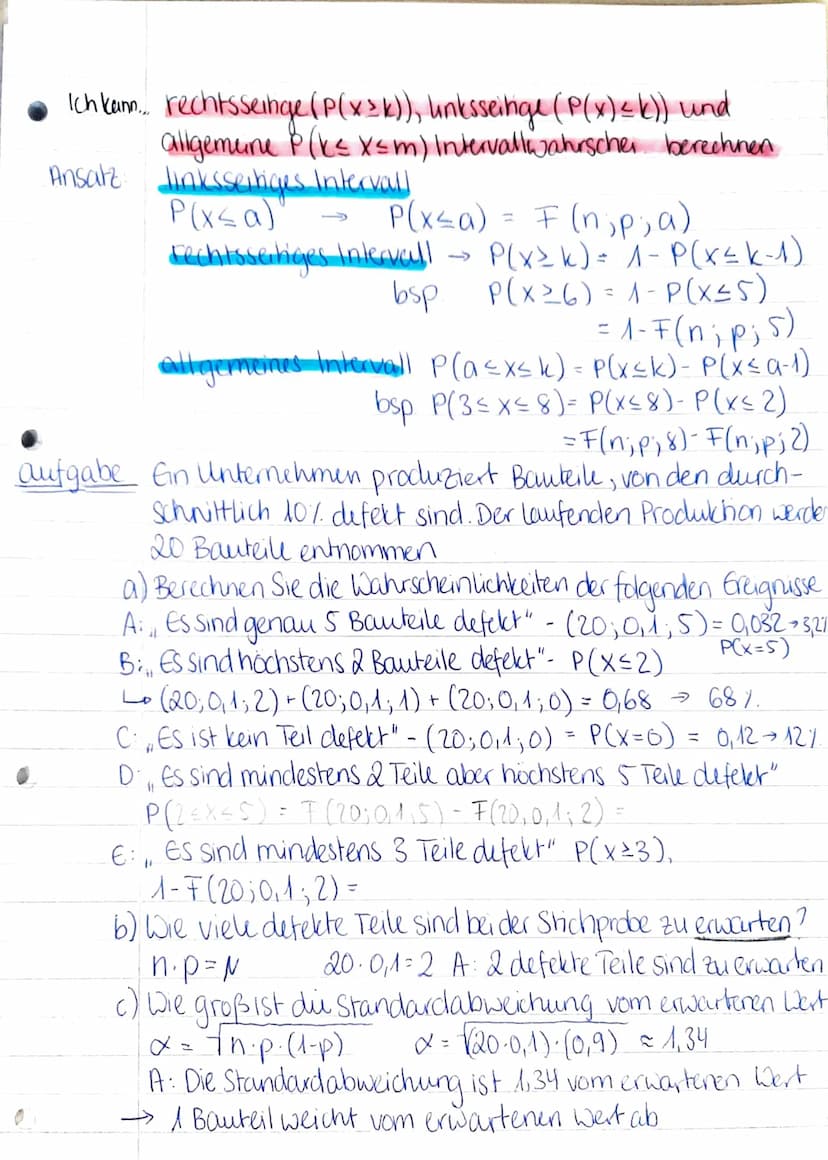 Ich kann... rechtsseitige (P(x≥k)), linksseitige (P(x)≤k)) und
allgemeine P(k≤x≤m) Intervallwahrschei. berechnen
Ansatz: linksseitiges Intervall
P(x≤a) → P(x≤a) = F(n;p;a)
rechtsseitiges Intervall → P(x≥k) = 1-P(x≤k-1)
bsp P(x≥6) = 1-P(x≤5)
= 1-F(n;p;5)
allgemeines Intervall P(a≤x≤k) = P(x≤k)-P(x≤a-1)
bsp P(3≤x≤8) = P(x≤8)-P(x≤2)
=F(n;p;8)-F(n;p;2)
aufgabe Ein Unternehmen produziert Bauteile, von den durch-
schnittlich 10% defekt sind. Der laufenden Produktion werde
20 Bauteile entnommen
a) Berechnen Sie die Wahrscheinlichkeiten der folgenden Ereignisse
A: „Es sind genau 5 Bauteile defekt" - (20;0,1;5) = 0,032 → 3,2%
P(x=5)
B: „Es sind höchstens 2 Bauteile defekt" - P(x≤2)
↳ (20;0,1;2)+(20;0,1;1)+(20;0,1;0) = 0,68 → 68%
C: „Es ist kein Teil defekt" - (20;0,1;0) = P(x=0) = 0,12 → 12%
D: „Es sind mindestens 2 Teile aber höchstens 5 Teile defekt"
P(2≤x≤5) = F(20;0,1;5) - F(20,0,1;2) =
E: „Es sind mindestens 3 Teile defekt" P(x≥3),
1-F(20;0,1;2) =
b) Wie viele defekte Teile sind bei der Stichprobe zu erwarten?
n·p=N 20·0,1=2 A: 2 defekte Teile sind zu erwarten
c) Wie groß ist die Standardabweichung vom erwarteren Wert
α = √n·p·(1-p) α = √(20·0,1)·(0,9) ≈ 1,34
A: Die Standardabweichung ist 1,34 vom erwarteren Wert
→ 1 Bauteil weicht vom erwartenen Wert ab